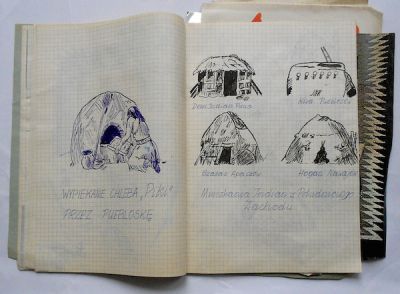 WYPIEKANE CHLEBA „PIKI”
PRZEZ PUEBLOSKĘ
Dom Indian
Kiva Pueblosów
Szałas Apaczów
Hogan Navajów
Mieszkania Indian z Południowego
Zachodu